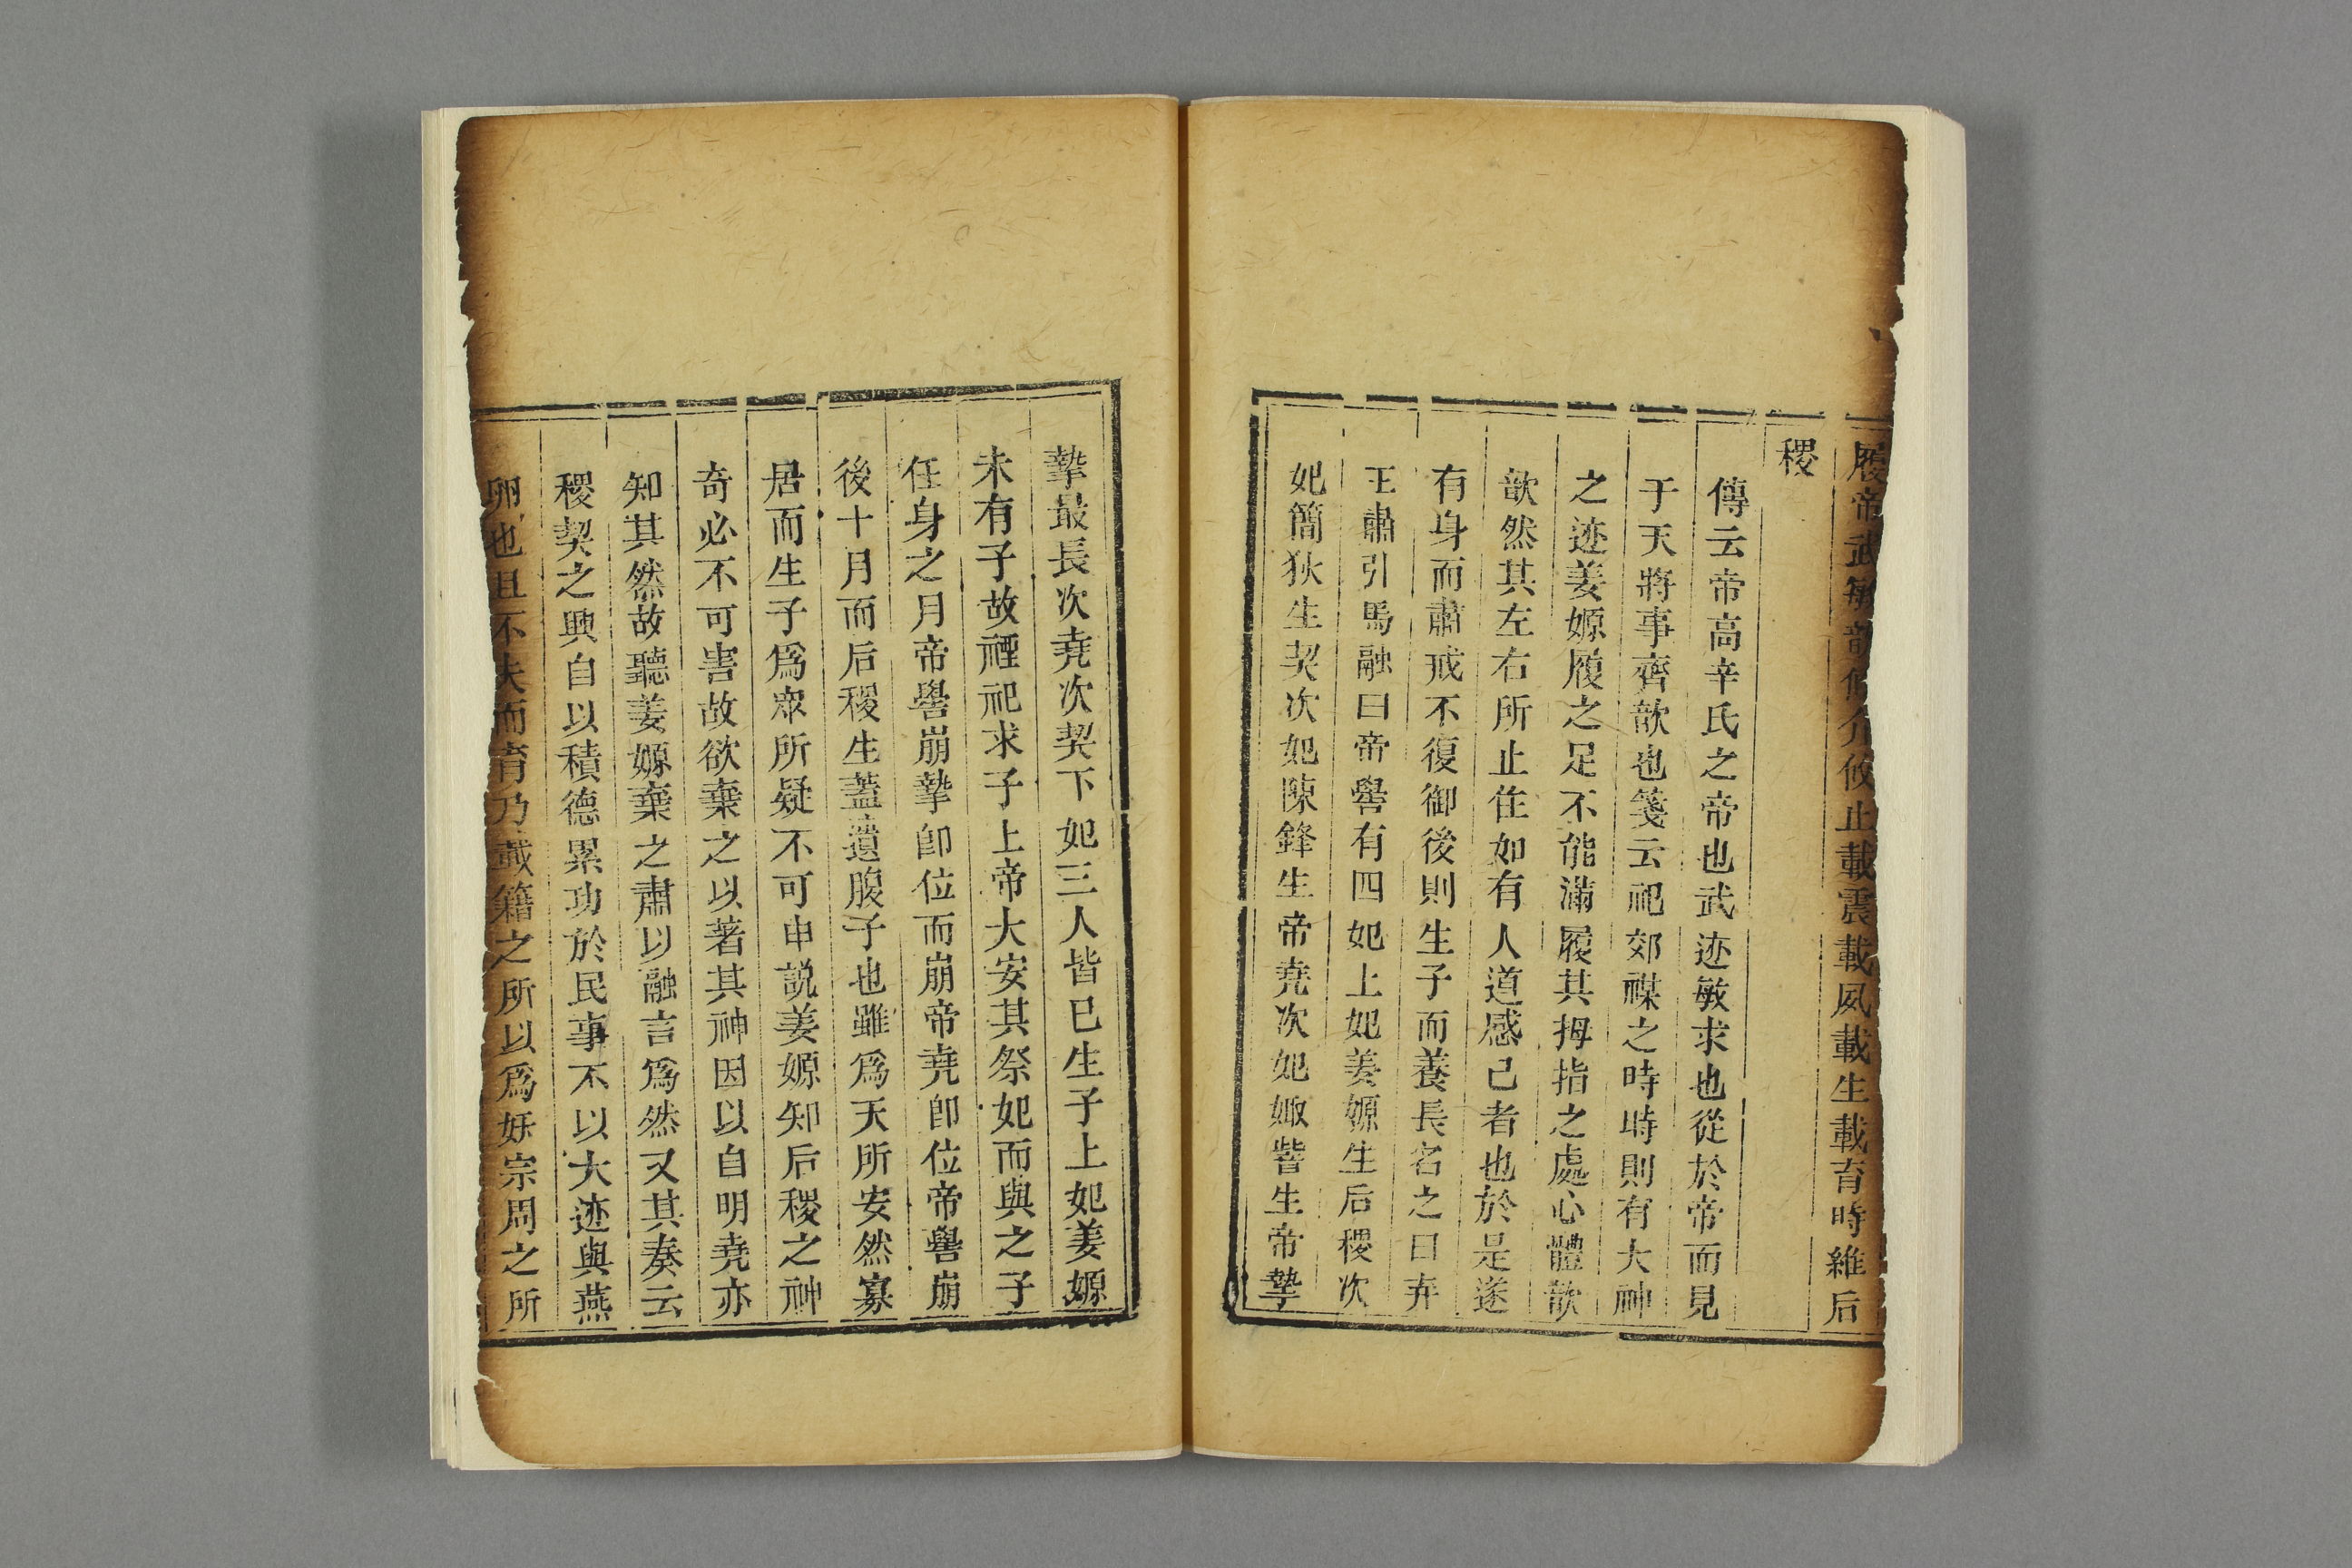 履帝武敏歆攸介攸止載震載夙載生載育時維后
稷
傳云帝高辛氏之帝也武迹敏求也從於帝而見
于天將事齊歆也箋云祀郊禖之時時則有大神
之迹姜嫄履之足不能滿履其拇指之處心體歆
歆然其左右所止住如有人道感己者也於是遂
有身而肅戒不復御後則生子而養長名之曰弃
王肅引馬融曰帝嚳有四妃上妃姜嫄生后稷次
妃簡狄生契次妃陳鋒生帝堯次妃娵訾生帝摯
摯最長次堯次契下妃三人皆已生子上妃姜嫄
未有子故禋祀求子上帝大安其祭妃而與之子
任身之月帝嚳崩摯卽位而崩帝堯卽位帝嚳崩
後十月而后稷生蓋遺腹子也雖爲天所安然寡
居而生子爲衆所疑不可申説姜嫄知后稷之神
奇必不可害故欲棄之以著其神因以自明堯亦
知其然故聽姜嫄棄之肅以融言爲然又其奏云
稷契之興自以積德累功於民事不以大迹與燕
卵也且不夫而育乃載籍之所以爲妖宗周之所